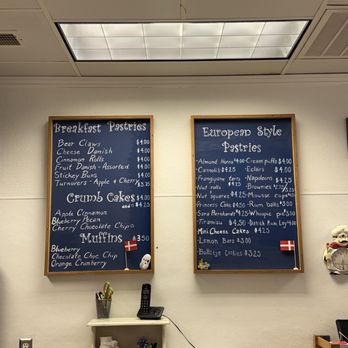 Breakfast Pastries
Bear Claws $4.00
Cheese Danish $4.00
Cinnamon Rolls $4.00
Fruit Danish - Assorted $4.00
Stickey Buns $4.00
Turnovers - Apple & Cherry $3.75
Crumb Cakes
Apple Cinnamon
Blueberry Pecan
Cherry Chocolate Chip
Muffins $3.50
Blueberry
Chocolate Choc Chip
Orange Cranberry
European Style
Pastries
- Almond Horns $4.00 - Cream puffs $4.00
- Cannoli's $4.25 - Eclairs
- Frangipane tarts - Napoleons $4.25
Nut rolls - Brownies
Nut squares $4.25 - Mousse cups
Princess Cake - Rum balls
Sara Bernhardt's $4.25 - Whoopie pie
- Tiramisu - Rum Log
Mini Cheese Cakes $4.25
- Lemon Bars $3.00
Cookies $3.25